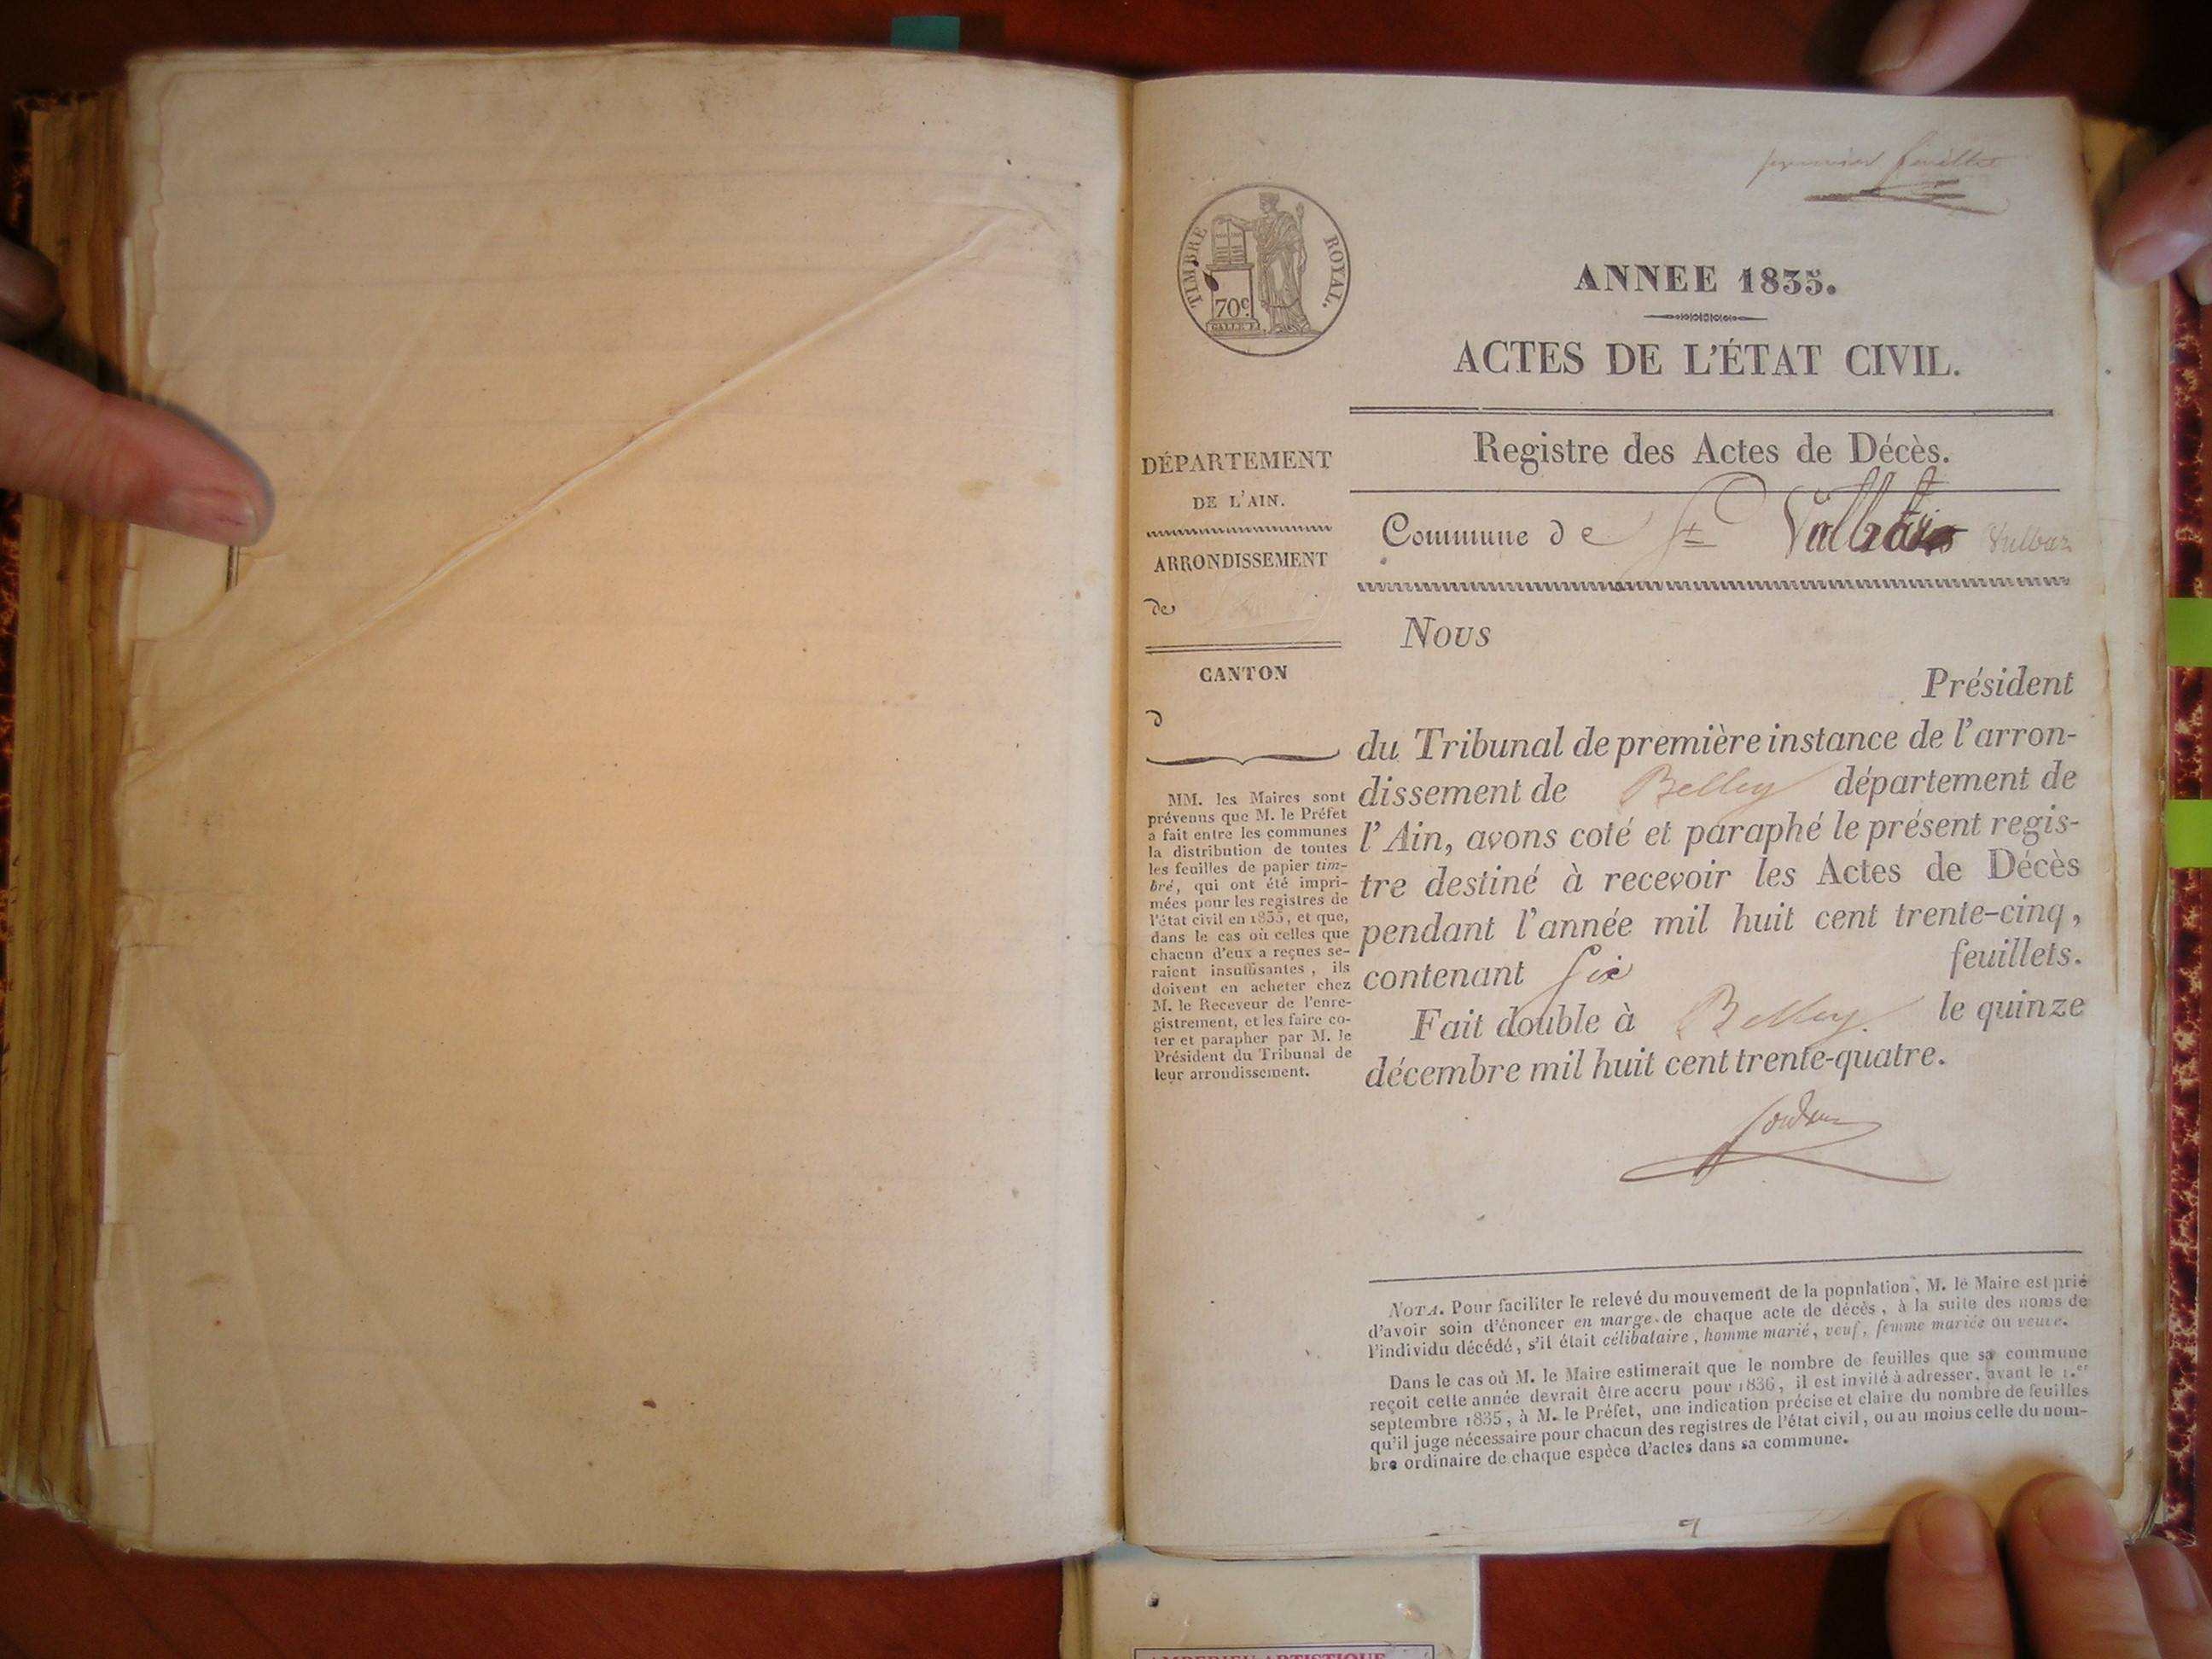 premier feuillet
TIMBRE ROYAL.
70c.
ANNEE 1835.
ACTES DE L'ÉTAT CIVIL.
Registre des Actes de Décès.
Commune de St Vulbas
DÉPARTEMENT
DE L'AIN.
ARRONDISSEMENT
de
CANTON
d
MM. les Maires sont
prévenus que M. le Préfet
a fait entre les communes
la distribution de toutes
les feuilles de papier tim-
bré, qui ont été impri-
mées pour les registres de
l'état civil en 1835, et que,
dans le cas où celles que
chacun d'eux a reçues se-
raient insuffisantes, ils
doivent en acheter chez
M. le Receveur de l'enre-
gistrement, et les faire co-
ter et parapher par M. le
Président du Tribunal de
leur arrondissement.
Nous
Président
du Tribunal de première instance de l'arron-
dissement de Belley département de
l'Ain, avons coté et paraphé le présent regis-
tre destiné à recevoir les Actes de Décès
pendant l'année mil huit cent trente-cinq,
contenant Six feuillets.
Fait double à Belley. le quinze
décembre mil huit cent trente-quatre.
NOTA. Pour faciliter le relevé du mouvement de la population, M. le Maire est prié
d'avoir soin d'énoncer en marge de chaque acte de décès, à la suite des noms de
l'individu décédé, s'il était célibataire, homme marié, veuf, femme mariée ou veuve.
Dans le cas où M. le Maire estimerait que le nombre de feuilles que sa commune
reçoit cette année devrait être accru pour 1836, il est invité à adresser, avant le 1.er
septembre 1835, à M. le Préfet, une indication précise et claire du nombre de feuilles
qu'il juge nécessaire pour chacun des registres de l'état civil, ou au moins celle du nom-
bre ordinaire de chaque espèce d'actes dans sa commune.
AMBERIEU ARTISTIQUE